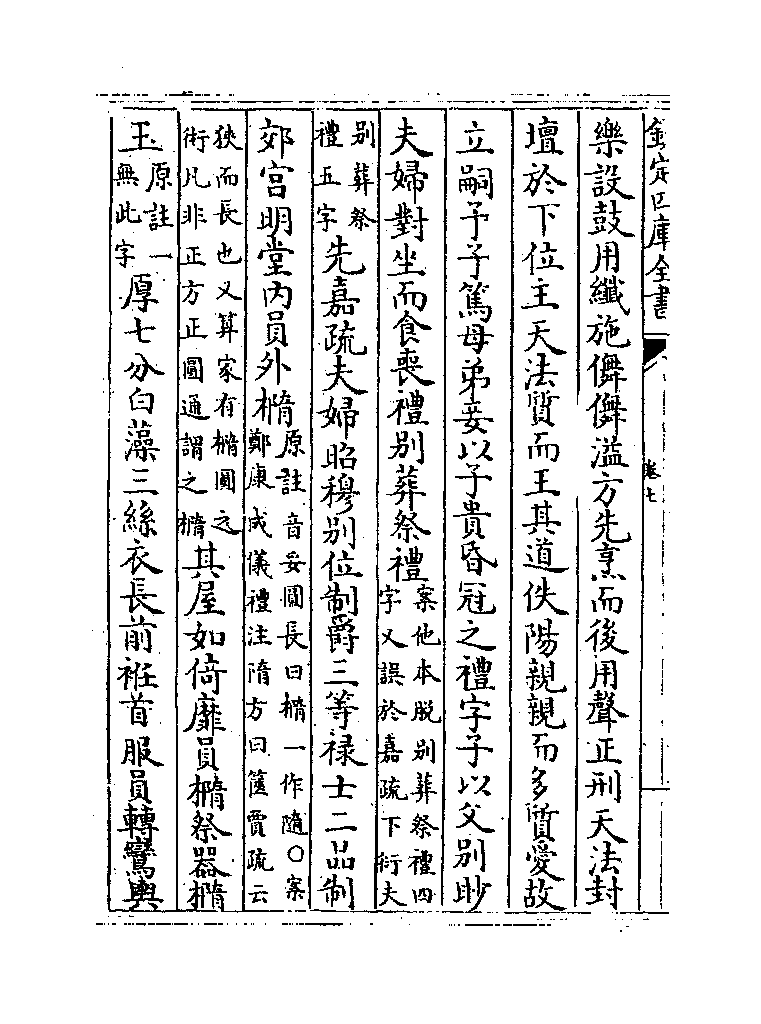 欽定四庫全書
卷七
樂設鼓用纖施儛儛溢方先烹而後用聲正刑天法封
壇於下位主天法質而王其道佚陽親親而多質愛故
立嗣予子篤母弟妾以子貴昏冠之禮字子以父别眇
夫婦對坐而食喪禮别葬祭禮案他本脱别葬祭禮四字又誤於嘉疏下衍夫
别葬祭禮五字先嘉疏夫婦昭穆别位制爵三等禄士二品制
郊宫明堂内員外橢原註音妥圓長曰橢一作隨○案鄭康成儀禮注隋方曰篋賈疏云
狹而長也又算家有橢圓之術凡非正方正圓通謂之橢其屋如倚靡員橢祭器橢
玉原註一無此字厚七分白藻三絲衣長前衽首服員轉鸞輿